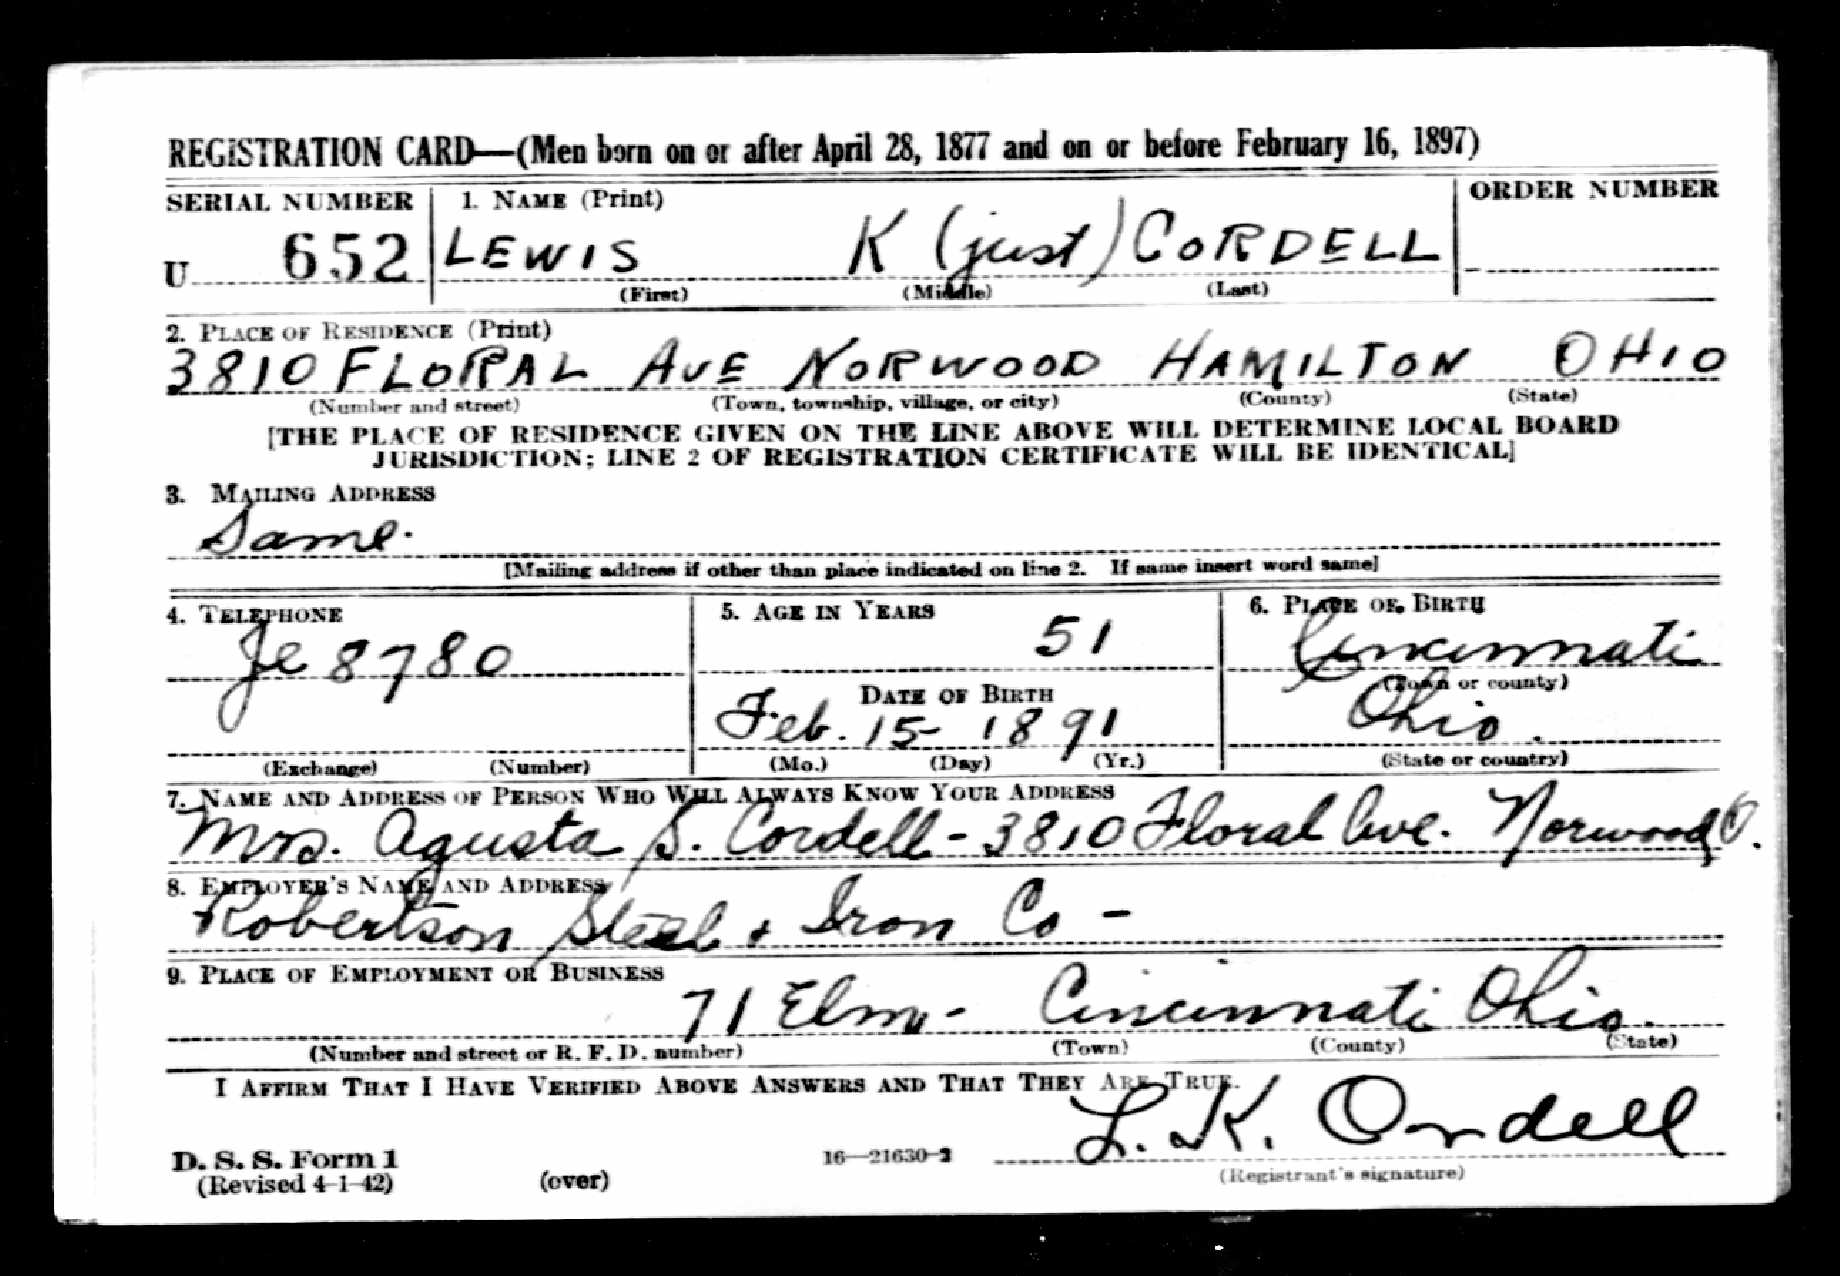 REGISTRATION CARD—(Men born on or after April 28, 1877 and on or before February 16, 1897)
SERIAL NUMBER 1. NAME (Print) ORDER NUMBER
U 652 LEWIS K (just) CORDELL
(First) (Middle) (Last)
2. PLACE OF RESIDENCE (Print)
3810 FLORAL AVE NORWOOD HAMILTON OHIO
(Number and street) (Town, township, village, or city) (County) (State)
[THE PLACE OF RESIDENCE GIVEN ON THE LINE ABOVE WILL DETERMINE LOCAL BOARD
JURISDICTION; LINE 2 OF REGISTRATION CERTIFICATE WILL BE IDENTICAL]
3. MAILING ADDRESS
Same.
[Mailing address if other than place indicated on line 2. If same insert word same]
4. TELEPHONE 5. AGE IN YEARS 6. PLACE OF BIRTH
Je 8780 51 Cincinnati
DATE OF BIRTH (Town or county)
Feb. 15- 1891 Ohio.
(Exchange) (Number) (Mo.) (Day) (Yr.) (State or country)
7. NAME AND ADDRESS OF PERSON WHO WILL ALWAYS KNOW YOUR ADDRESS
Mrs. Agusta S. Cordell - 3810 Floral Ave. Norwood, O.
8. EMPLOYER'S NAME AND ADDRESS
Robertson Steel + Iron Co -
9. PLACE OF EMPLOYMENT OR BUSINESS
71 Elm - Cincinnati Ohio.
(Number and street or R. F. D. number) (Town) (County) (State)
I AFFIRM THAT I HAVE VERIFIED ABOVE ANSWERS AND THAT THEY ARE TRUE.
L. K. Cordell
D. S. S. Form 1 16—21630-2
(Revised 4-1-42) (over) (Registrant's signature)